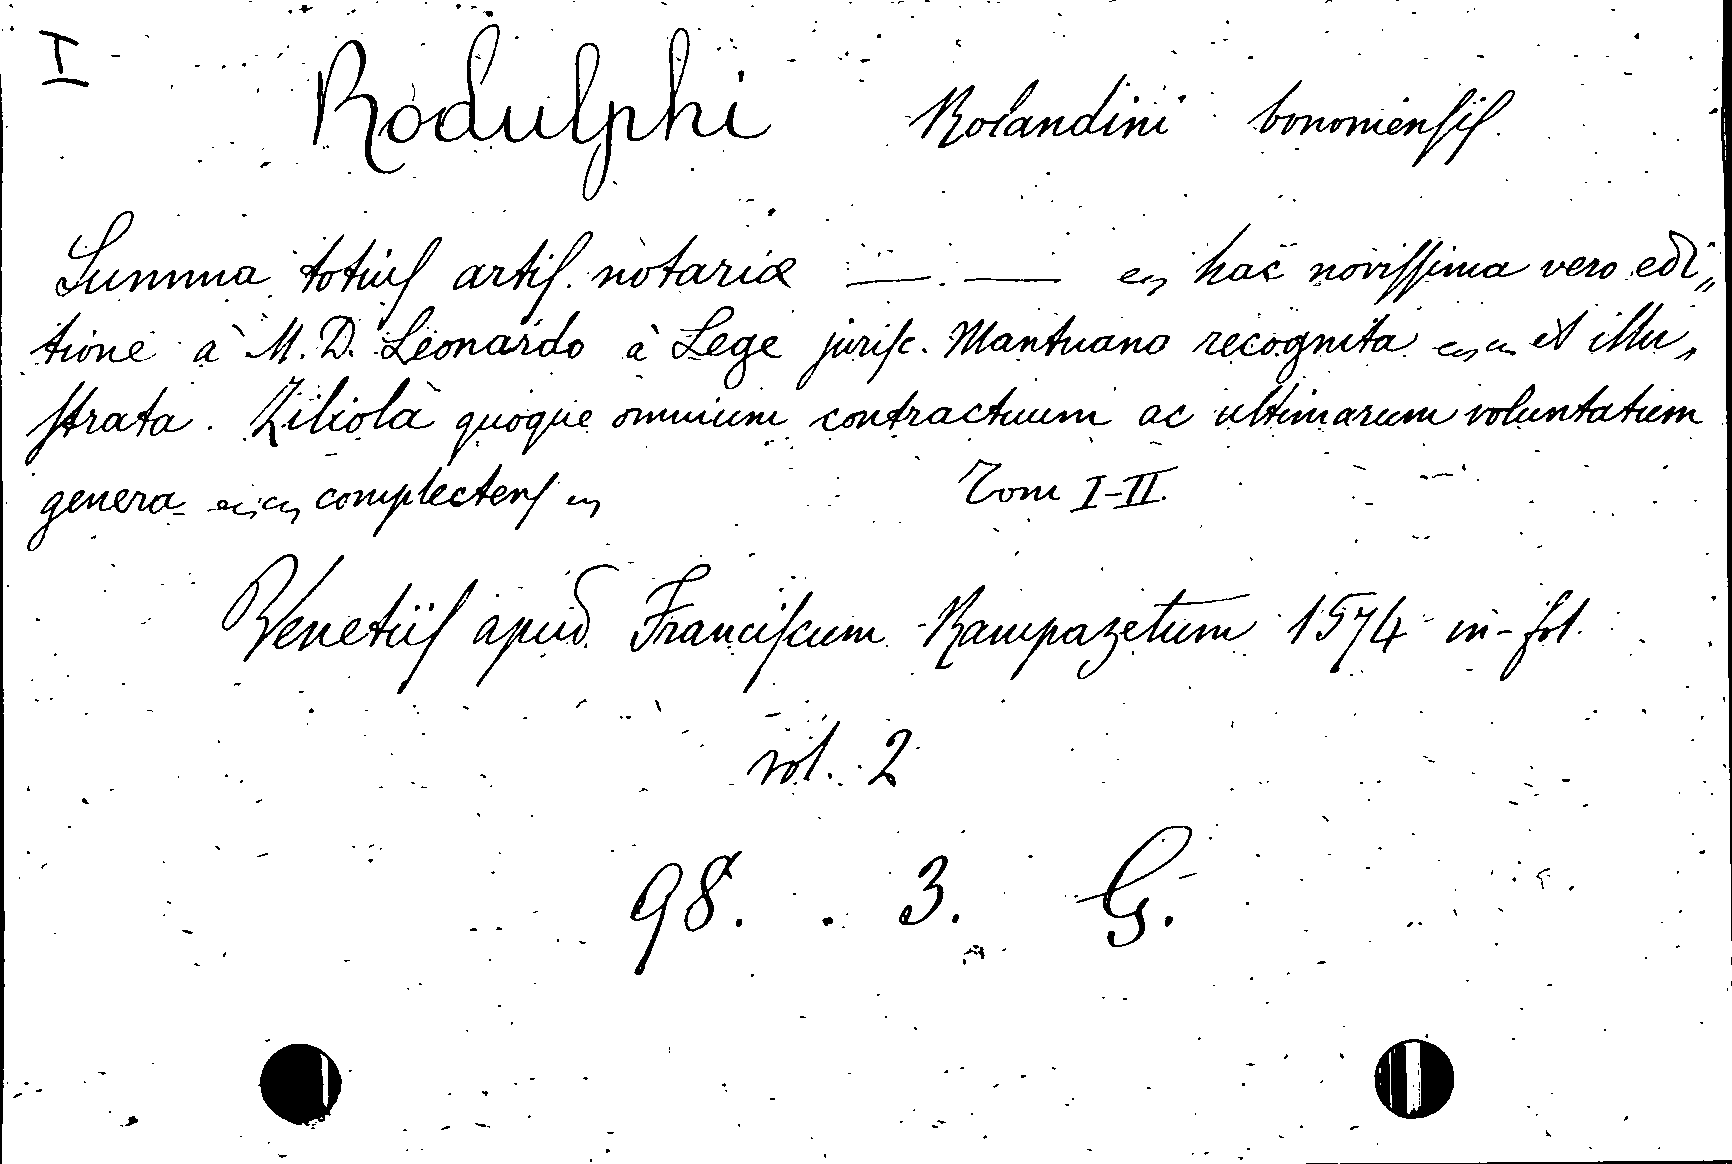 I
Rodulphi Rolandini bononiensis.
Summa totius artis notariæ —— . —— hac novissima vero edi„
tione à M. D. Leonardo à Lege jurisc. Mantuano recognita et illu„
strata. Ziliola quoque omnium contractuum ac ultimarum voluntatum
genera complectens Tom I-II.
Venetiis apud Franciscum Rampazetum 1574 in-fol.
vol. 2
98. . 3. G.